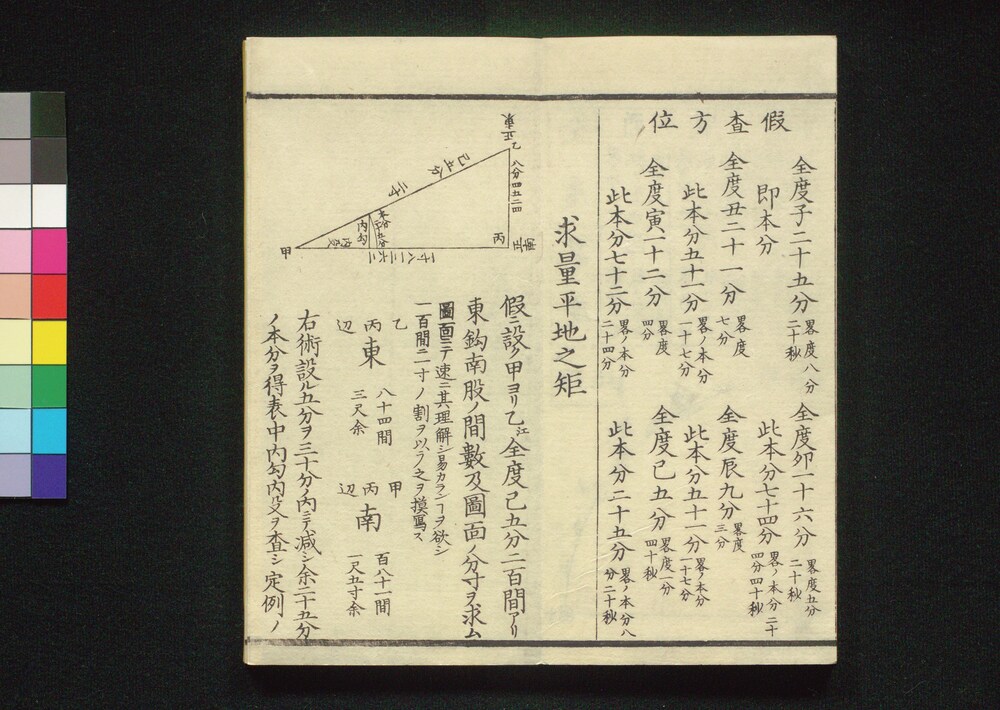 假查方位
全度子二十五分 畧度八分二十秒
即本分
全度丑二十一分 畧度七分
此本分五十一分 畧ノ本分一十七分
全度寅一十二分 畧度四分
此本分七十二分 畧ノ本分二十四分
全度卯一十六分 畧度五分二十秒
此本分七十四分 畧ノ本分二十四分四十秒
全度辰九分 畧度三分
此本分五十一分 畧ノ本分一十七分
全度巳五分 畧度一分四十秒
此本分二十五分 畧ノ本分八分二十秒
求量平地之矩
假ニ設ク甲ヨリ乙江全度己五分二百間アリ
東鈎南股ノ間數及圖面ノ分寸ヲ求ム
圖面ニテ速ニ其理解シ易カランヿヲ欲シ
一百間二寸ノ割ヲ以テ之ヲ摸寫ス
乙丙辺 東 八十四間三尺余
甲丙辺 南 百八十一間一尺五寸余
右術設ル五分ヲ三十分ノ内ニテ減シ余二十五分
ノ本分ヲ得表中内勾内殳ヲ査シ定例ノ
正東
乙
八分四五二四
丙
正南
己五分
二寸
本分廿五分
内勾
内殳
甲
一寸八一二六二